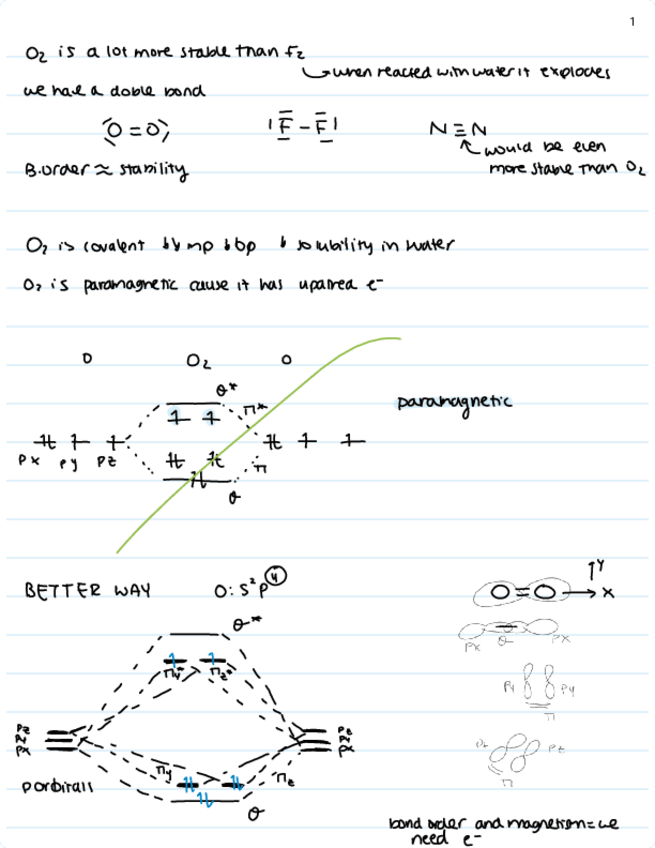 1
O₂ is a lot more stable than F₂
↳ when reacted with water it explodes
we have a doble bond
O=O F-F N≡N
↖ would be even
more stable than O₂
B.order ≈ stability
O₂ is covalent ↓ mp ↓ bp ↓ solubility in water
O₂ is paramagnetic cause it has upaired e⁻
O O₂ O
θ*
π*
paramagnetic
px py pz
π
θ
BETTER WAY O: s²p④
↑Y
O=O → x
θ*
px θ px
πy* πz*
py py
π
pz
px
pz
px
pz pz
π
πy πz
porbitals
θ
bond order and magnetism = we
need e⁻